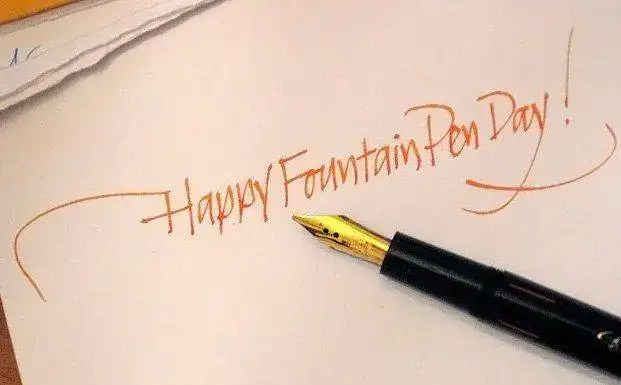 Happy Fountain Pen Day!